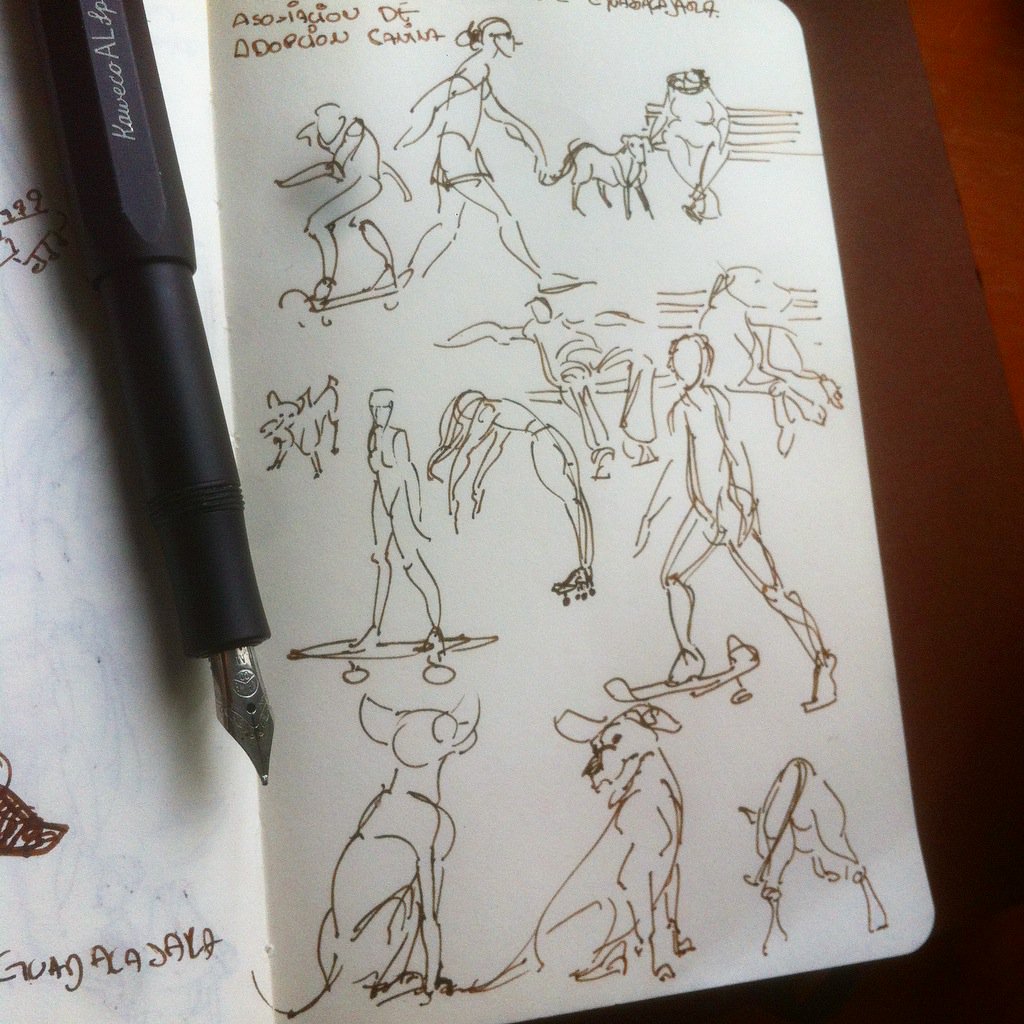 Kaweco AL Sp
ASOCIACION DE GUADALAJARA
ADOPCION CANINA
GUADALAJARA